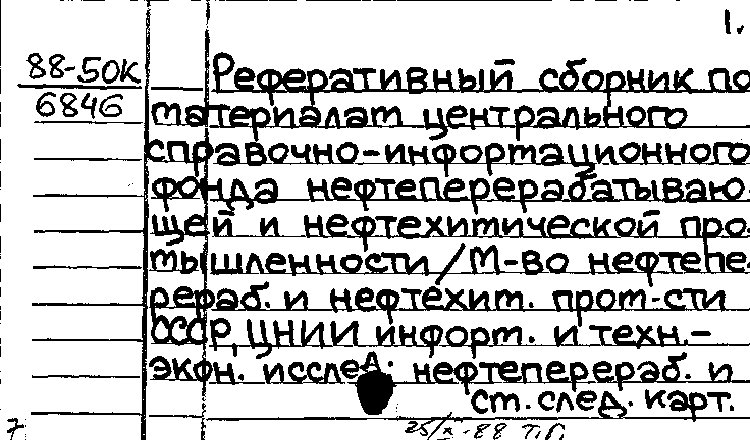 1.
88-50К
6846
Реферативный сборник по
материалам центрального
справочно-информационного
фонда нефтеперерабатываю
щей и нефтехимической про-
мышленности/М-во нефтепе-
рераб. и нефтехим. пром-сти
СССР, ЦНИИ информ. и техн.-
экон. исслед. нефтеперераб. и
см. след. карт.
7
25/X-88 Т.П.